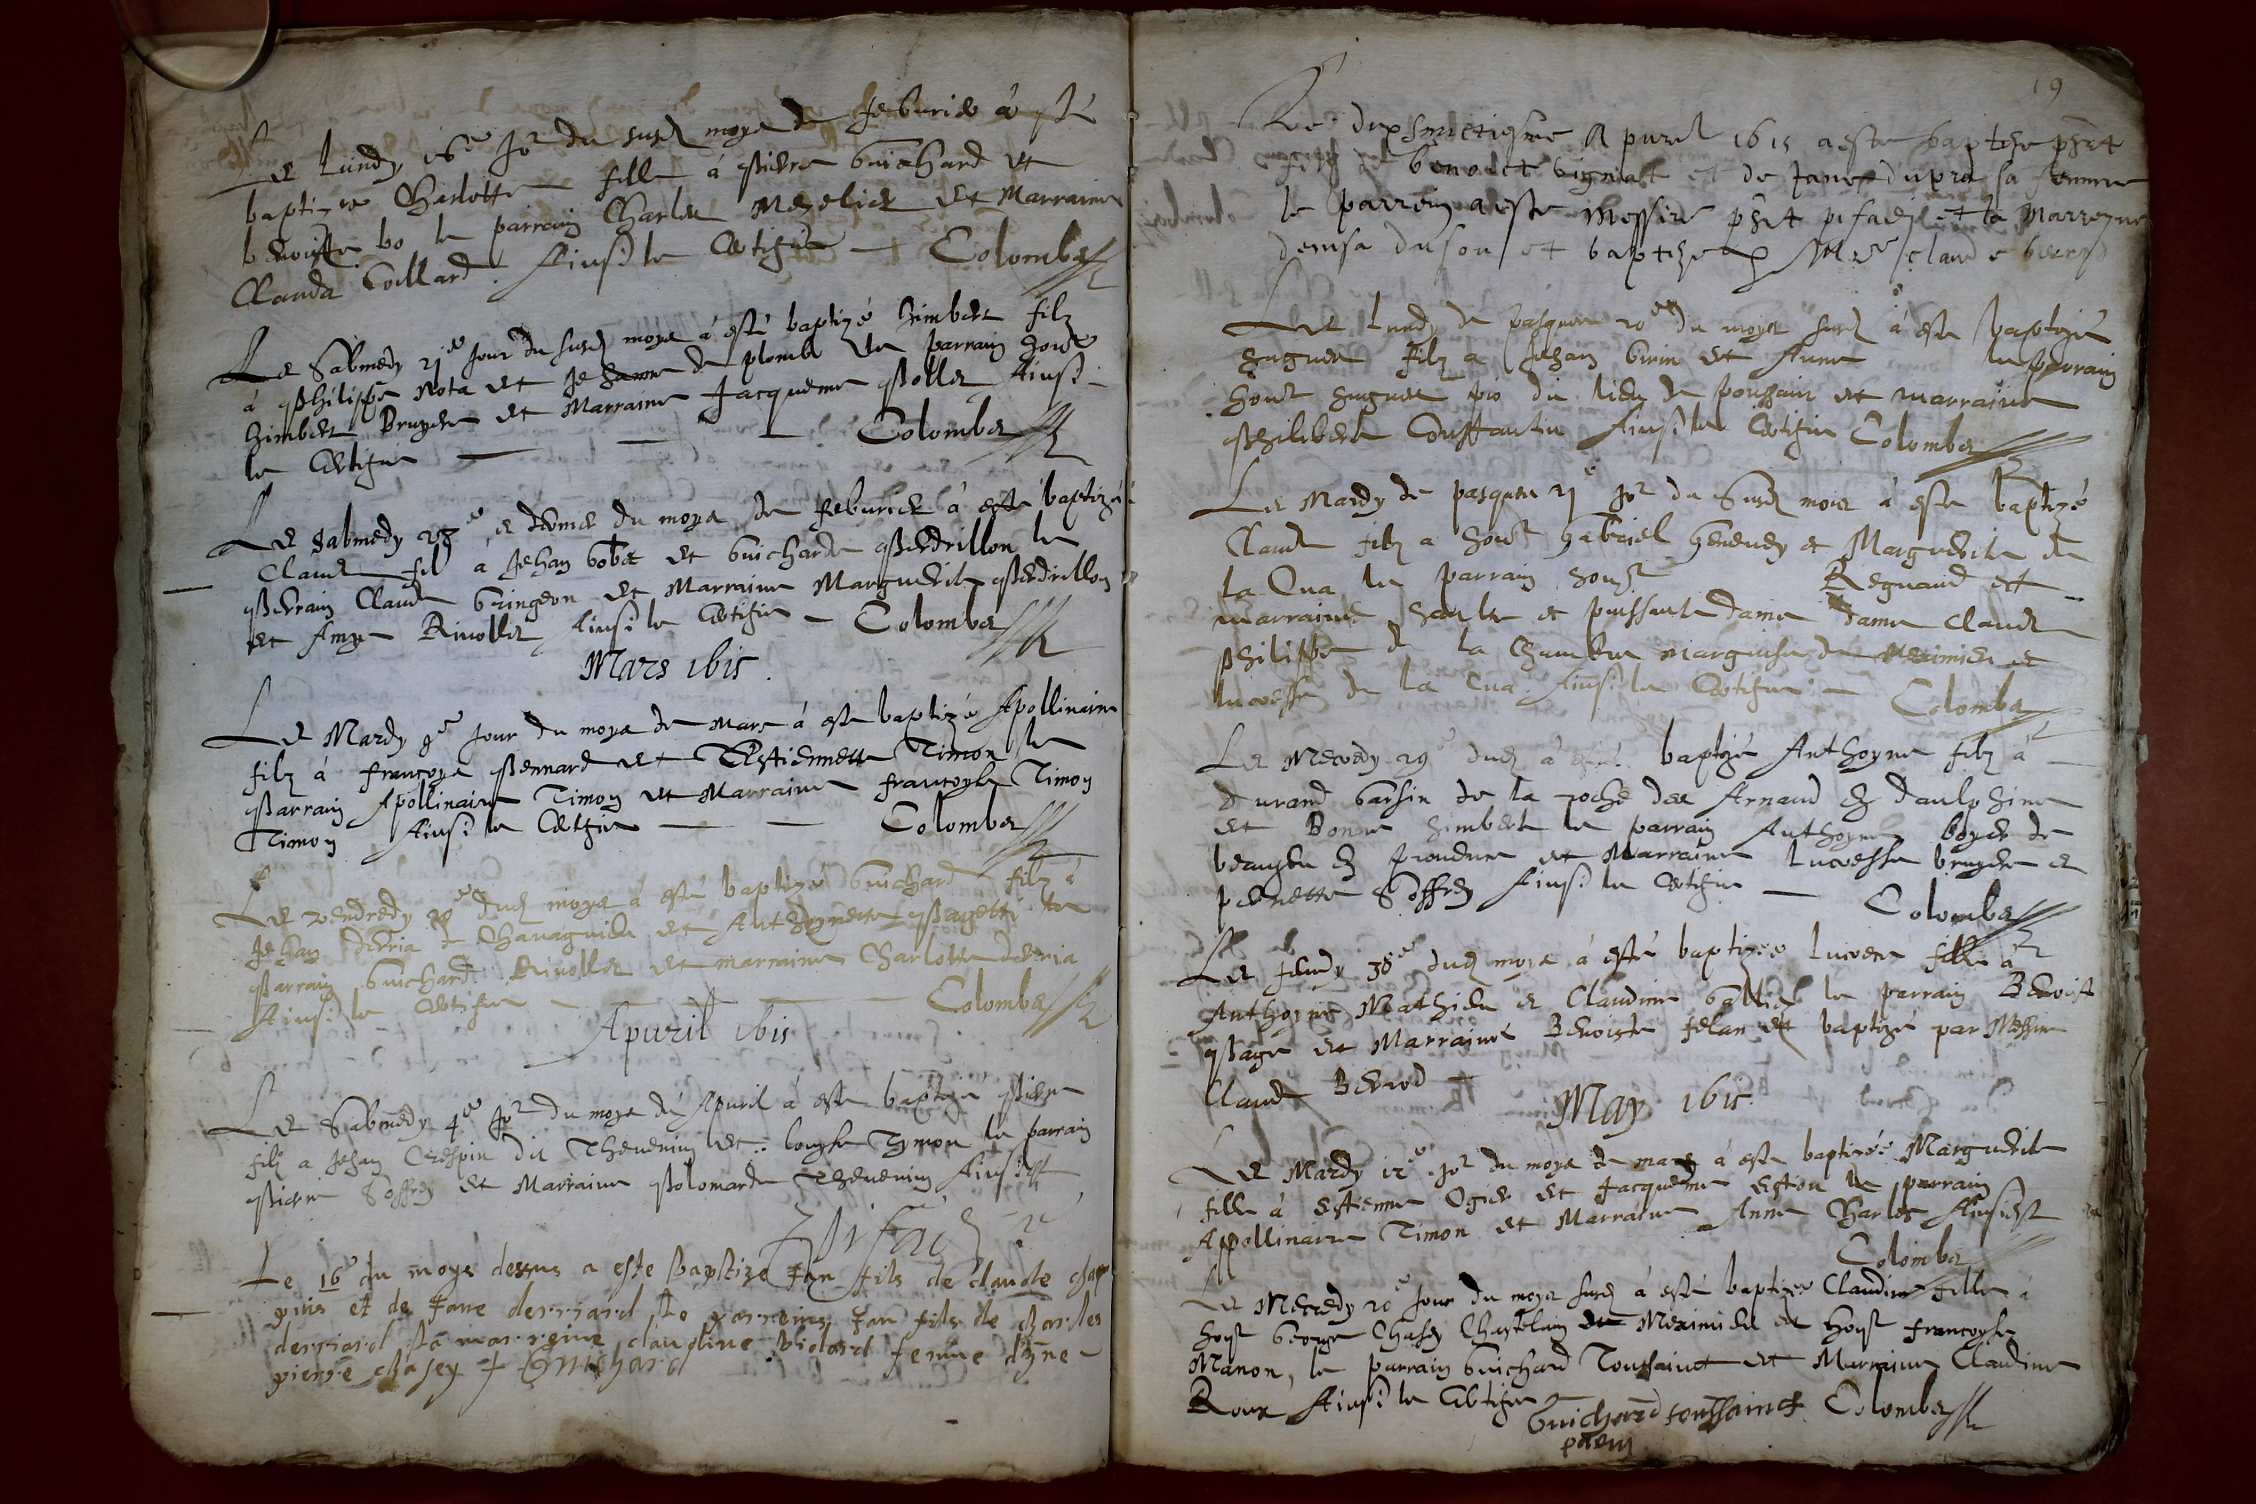 Le Lundy 16e Jor du susd moys de feburier a esté
baptizee Charlotte fille à Pierre Guichard et
benoiste bo le parrain Charles Mezelier et Marraine
Clauda Collard. Ainsi le Certifie — Colombet
Le Sabmedy 21e Jour du susd moys à esté baptizé himbert filz
à Philippe Nota et Jehanne de plomb le parrain honbe
himbert Bruyere et Marraine Jacqueme Pollet Ainsi
le Certifie — — Colombet
Le Sabmedy 28e et dernier du moys de feburier à esté baptizé
Claude fil à Jehan Gobet et Guicharde Perdrillon le
Perrain Claude Gringeon et Marraine Marguerite Perdrillon
et Amye Rivollet Ainsi le Certifie — Colombet
Mars 1615.
Le Mardy 9e Jour du moys de Mars à esté baptizé Apollinaire
filz à françoys Pennard et Estiennette Timon le
Parrain Apollinaire Timon et Marraine francoyse Timon
Timon Ainsi le Certifie — — Colombet
Le vendredy 28e dud moys à esté baptizé Guichard filz à
Jehan derria de Chavagnieu et Anthoynette Pagetti le
Parrain Guichard Rivollet et marraine Charlotte derria
Ainsi le Certifie — — Colombet
Apuril 1615
Le Sabmedy 4e Jor du moys de Apuril à esté baptizé Pierre
filz a Jehan Crespin dit Thevenin et louyse Tymon le parrain
Pierre Soffrey et Marraine Polomarde Thevenin Ainsi est
Pifady
Le 16e du moys dessus a este baptize Jan fils de claude chap
puis et de Jane derriard le parreins Jan fils de charles
derriard la marreine claudine violard femme dyne
pierre chasey + Guichard
19
Le dixsmetiesme Apuril 1615 a este baptize phet
filz de benoict vignat et de Janne dupra sa femme
le parrein a este Messire phet pifady et la Marreyne
denisa duson et baptize p Mre claude berod
Le Lundy de pasques 20e du moys susd à este baptizé
hugues filz a Jehan Girin et Anne le parrain
honbe hugues pio du lieu de poussain et marraine
Philiberte Constantin Ainsi le Certifie Colombet
Le Mardy de pasques 21e Jor du Susd mois à este baptizé
Claude filz a honbe gabriel henevey et Marguerite de
la Cua le parrain honbe Regnaud et
marraine haulte et puissante dame dame Claude
Philippe de la Chambre marquise de Meximieu et
lucesse de la Cua Ainsi le Certifie — Colombet
Le Mecredy 29e dud à esté baptizé Anthoyne filz à
durand Garsin de la roche des Arnaud en daulphine
et Bonne himbert le parrain Anthoyne boyer de
beaujeu en et Marraine lucresse bruyere et
pernette Soffrey Ainsi le Certifie — Colombet
Le Jeudy 30e dud moys à esté baptizée lucrece fille à
Anthoyne Mathieu et Claudine Gallier le parrain Benoist
Pagé et Marraine Benoiste felan et baptizé par Messire
Claude Berrod —
May 1615
Le Mardy 12e Jor du moys de may à esté baptizée Marguerite
fille à Estienne Ogier et Jacqueme Eston le parrain
Appollinaire Timon et Marraine Anne Charles Ainsi est
Colombet
Le Mecredy 20e Jour du moys susd à esté baptizée Claudine fille à
honbe George Chasey Chastelain de Meximieu et honbe francoyse
Manon, le parrain Guichard Toussainct et Marraine Claudine
Roux Ainsi le Certifie — Colombet
Guichard toussainct
parin